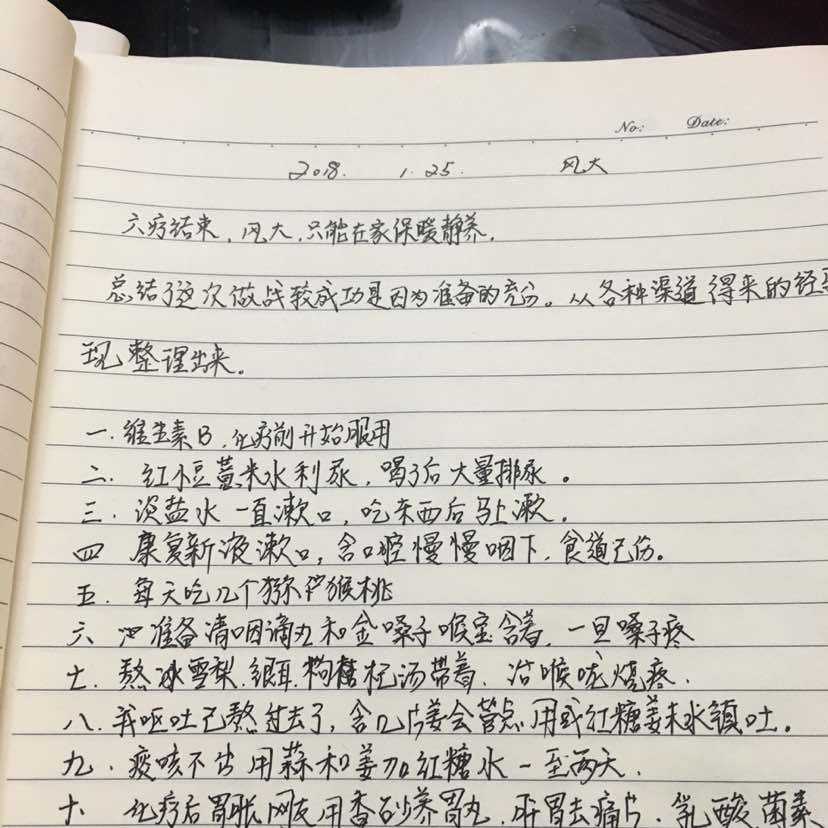 No: Date:
2018. 1.25. 风大
六疗结束，风大，只能在家保暖静养。
总结了这次做战较成功是因为准备的充分。从各种渠道得来的经
现整理出来。
一. 维生素B，化疗前开始服用
二. 红小豆薏米水利尿，喝了后大量排尿。
三. 淡盐水一直漱口，吃东西后马上漱。
四 康复新液漱口，含口腔慢慢咽下，食道已伤。
五. 每天吃几个猕猴桃
六 准备清咽滴丸和金嗓子喉宝含着，一旦嗓子疼
七. 熬冰雪梨.银耳.枸杞汤带着，治喉咙烧疼.
八. 我呕吐已熬过去了，含几片姜会管点用或红糖姜末水镇吐。
九. 痰咳不出用蒜和姜加红糖水一至两天.
十 化疗后胃胀网友用香砂养胃丸，开胃去痛片.乳酸菌素